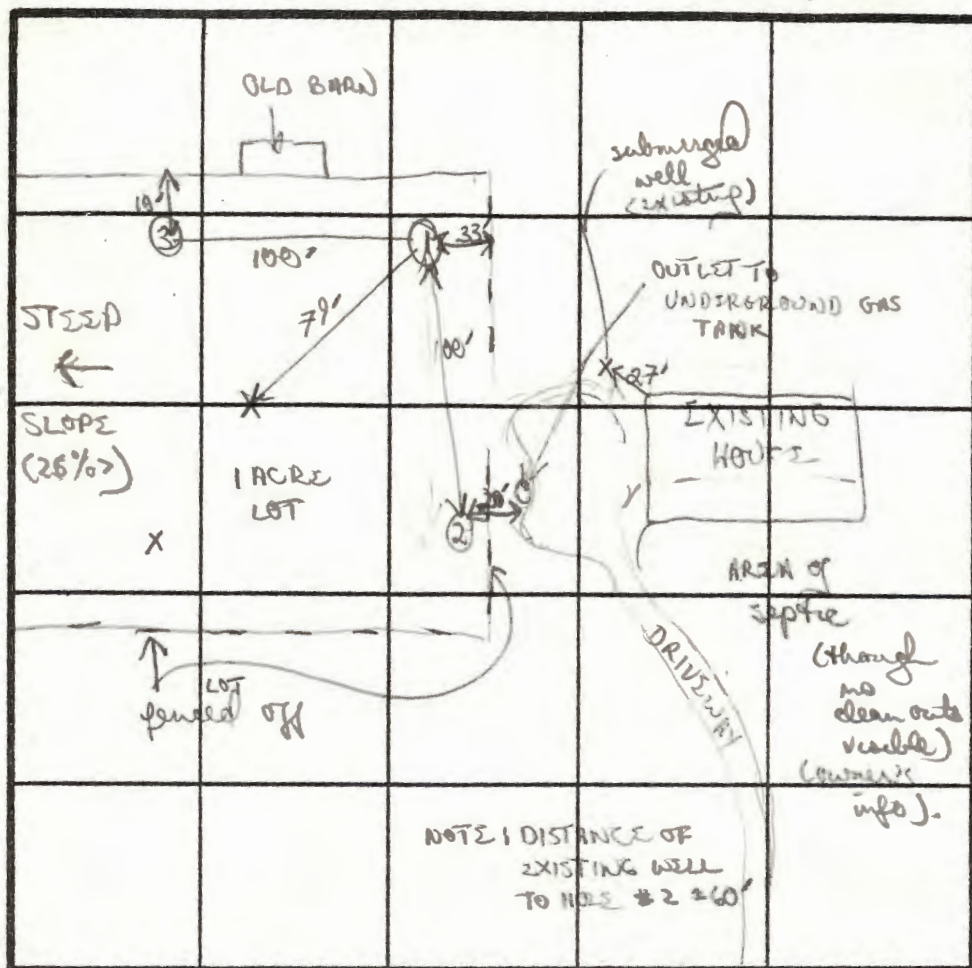 OLD BARN
submerged
well
(existing)
19'
3
100'
1
33'
OUTLET TO
UNDERGROUND GAS
TANK
79'
100'
STEEP
SLOPE
(25%>)
27'
EXISTING
HOUSE
1 ACRE
LOT
X
X
X
2
AREA of
septic
(though
no
clean outs
visible)
(owner's
info).
DRIVEWAY
LOT
fenced off
NOTE: DISTANCE OF
EXISTING WELL
TO HOLE #2 ±60'